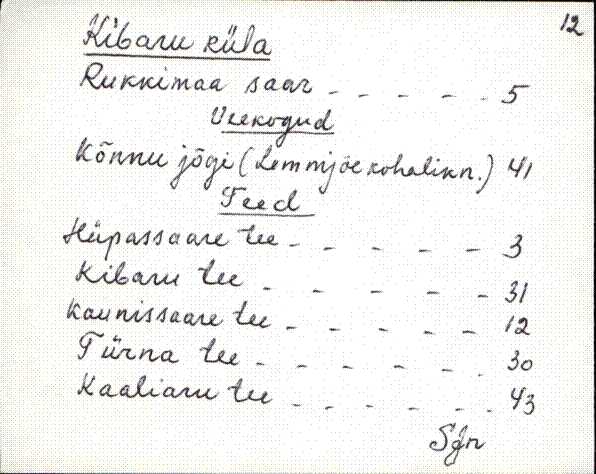 12
Kibaru küla
Rukkimaa saar - - - - - 5
Veekogud
Kõnnu jõgi (Lemmjõe kohalikn.) 41
Teed
Hüpassaare tee - - - - - 3
Kibaru tee - - - - - 31
Kaunissaare tee - - - - - 12
Türna tee - - - - - - 30
Kaaliaru tee - - - - - - 43